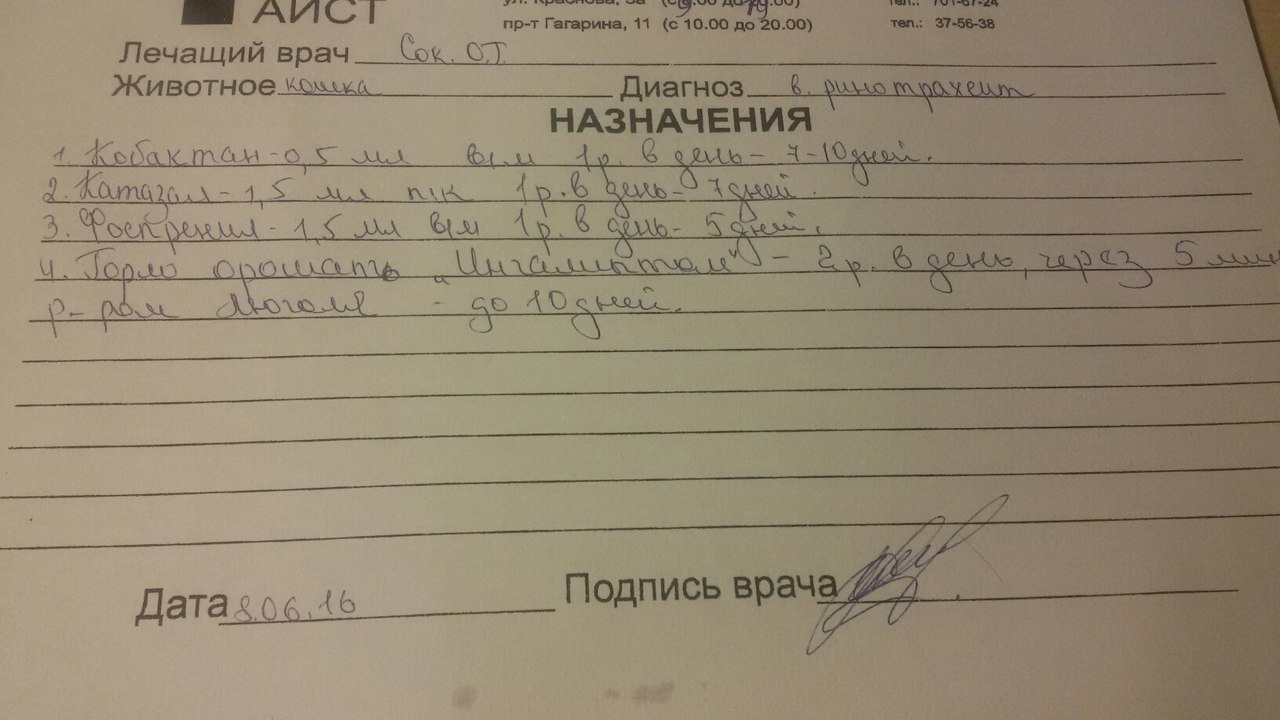 АИСТ
ул. Краснова, (с 9.00 до 19.00) тел.: 701-67-24
пр-т Гагарина, 11 (с 10.00 до 20.00) тел.: 37-56-38
Лечащий врач Сок. О.Т.
Животное кошка Диагноз в. ринотрахеит
НАЗНАЧЕНИЯ
1. Кобактан - 0,5 мл в/м 1 р. в день - 7-10 дней.
2. Катазал - 1,5 мл п/к 1 р. в день - 7 дней.
3. Фоспренил - 1,5 мл в/м 1 р. в день - 5 дней.
4. Горло орошать "Ингалиптом" - 2 р. в день, через 5 мин
р-ром Люголя - до 10 дней.
Дата 8.06.16 Подпись врача